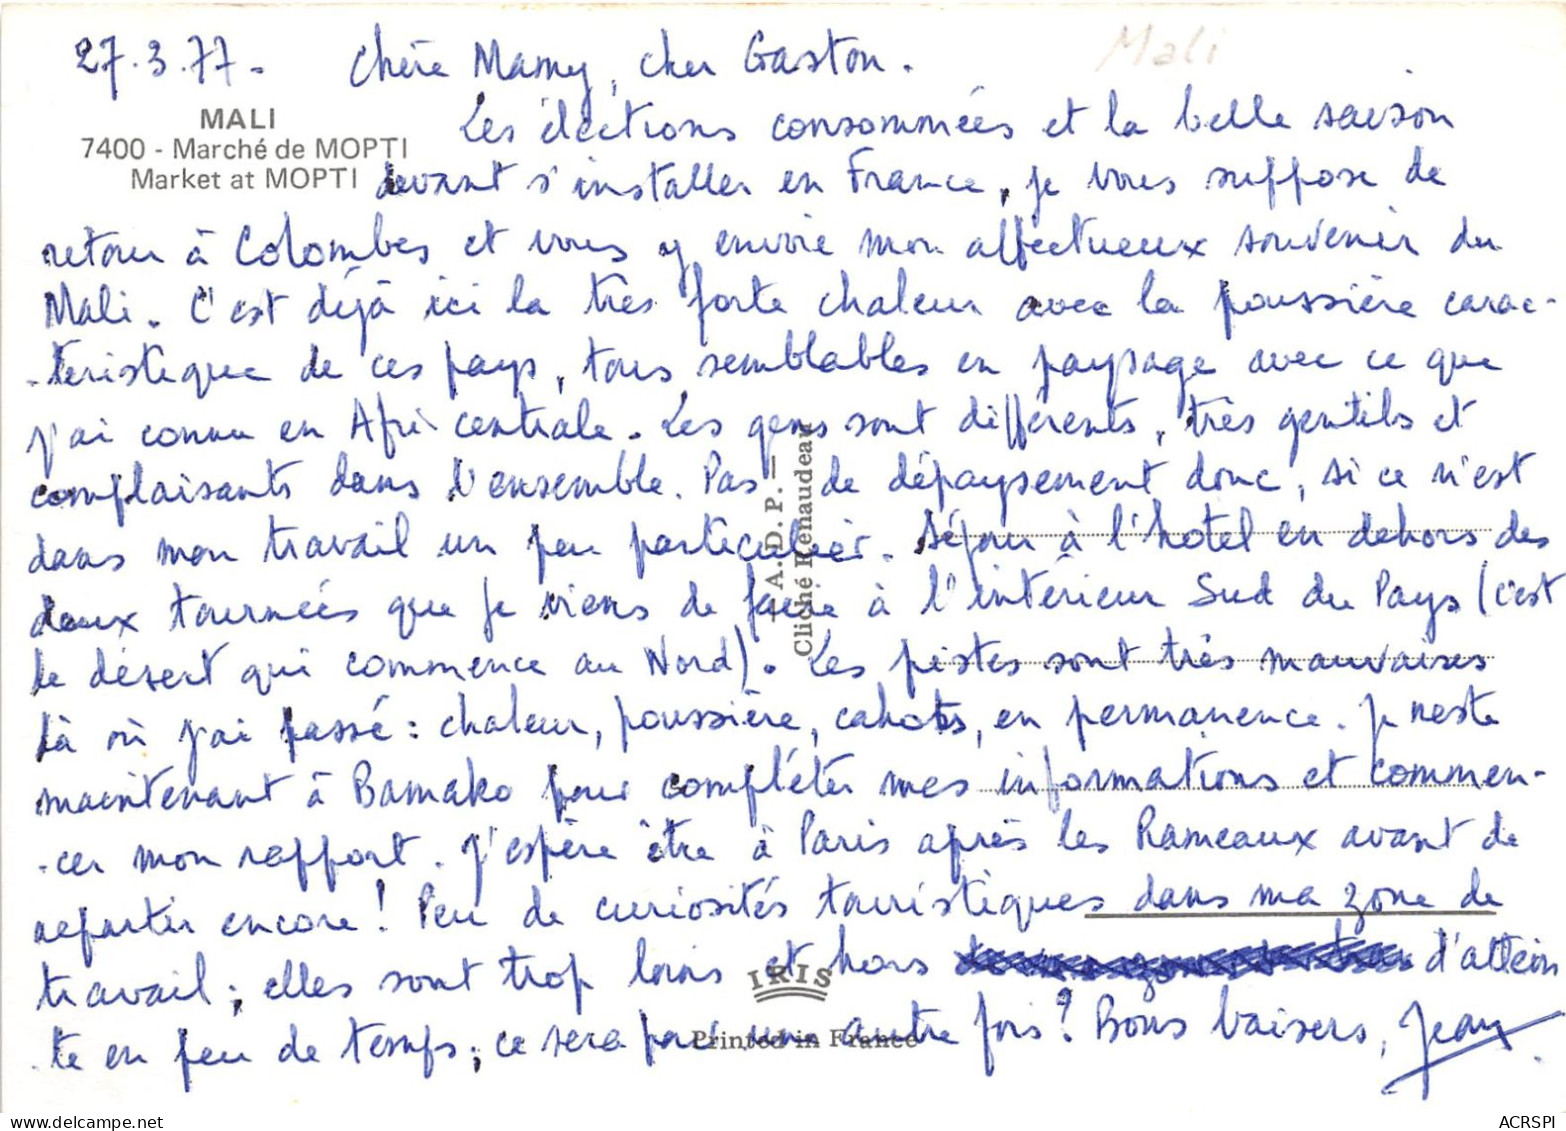 27.3.77. Chère Mamy, cher Gaston.
Mali
MALI
7400 - Marché de MOPTI
Market at MOPTI
Les élections consommées et la belle saison
devant s'installer en France, je vous suppose de
retour à Colombes et vous y envoie mon affectueux souvenir du
Mali. C'est déjà ici la très forte chaleur avec la poussière carac-
-téristique de ces pays, tous semblables en paysage avec ce que
j'ai connu en Afri centrale. Les gens sont différents, très gentils et
complaisants dans l'ensemble. Pas de dépaysement donc, si ce n'est
dans mon travail un peu particulier. Séjour à l'hotel en dehors des
deux tournées que je viens de faire à l'intérieur Sud du Pays (c'est
le désert qui commence au Nord). Les pistes sont très mauvaises
là où j'ai passé : chaleur, poussière, cahots, en permanence. Je reste
maintenant à Bamako pour compléter mes informations et commen-
-cer mon rapport. J'espère être à Paris après les Rameaux avant de
repartir encore ! Peu de curiosités touristiques dans ma zone de
travail ; elles sont trop loins et hors d'attein
te en peu de temps ; ce sera pour une autre fois ? Bons baisers, Jean
I.A.D.P. =
Cliché Renaudeau
IRIS
Printed in France
ACRSPI